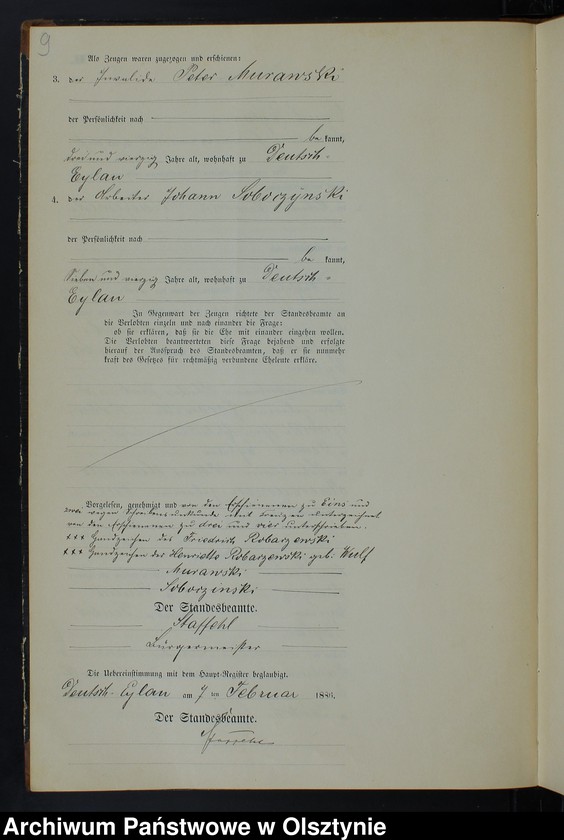 9
Als Zeugen waren zugezogen und erschienen:
3. der Invalide Peter Murawski
der Persönlichkeit nach
bekannt,
drei und vierzig Jahre alt, wohnhaft zu Deutsch-
Eylau
4. der Arbeiter Johann Soborzynski
der Persönlichkeit nach
bekannt,
sieben und vierzig Jahre alt, wohnhaft zu Deutsch-
Eylau
In Gegenwart der Zeugen richtete der Standesbeamte an
die Verlobten einzeln und nach einander die Frage:
ob sie erklären, daß sie die Ehe mit einander eingehen wollen.
Die Verlobten beantworteten diese Frage bejahend und erfolgte
hierauf der Ausspruch des Standesbeamten, daß er sie nunmehr
kraft des Gesetzes für rechtmäßig verbundene Eheleute erkläre.
Vorgelesen, genehmigt und von den Erschienenen zu Eins und
zwei wegen Schreibensunkunde mit Kreuzen unterzeichnet
von den Erschienenen zu drei und vier unterschrieben.
+++ Handzeichen des Friedrich Robarzewski
+++ Handzeichen der Henriette Robarzewski geb. Wulf
Murawski
Soborzinski
Der Standesbeamte.
Staffehl
Bürgermeister
Die Uebereinstimmung mit dem Haupt-Register beglaubigt.
Deutsch-Eylau am 7 ten Februar 1886.
Der Standesbeamte.
Archiwum Państwowe w Olsztynie